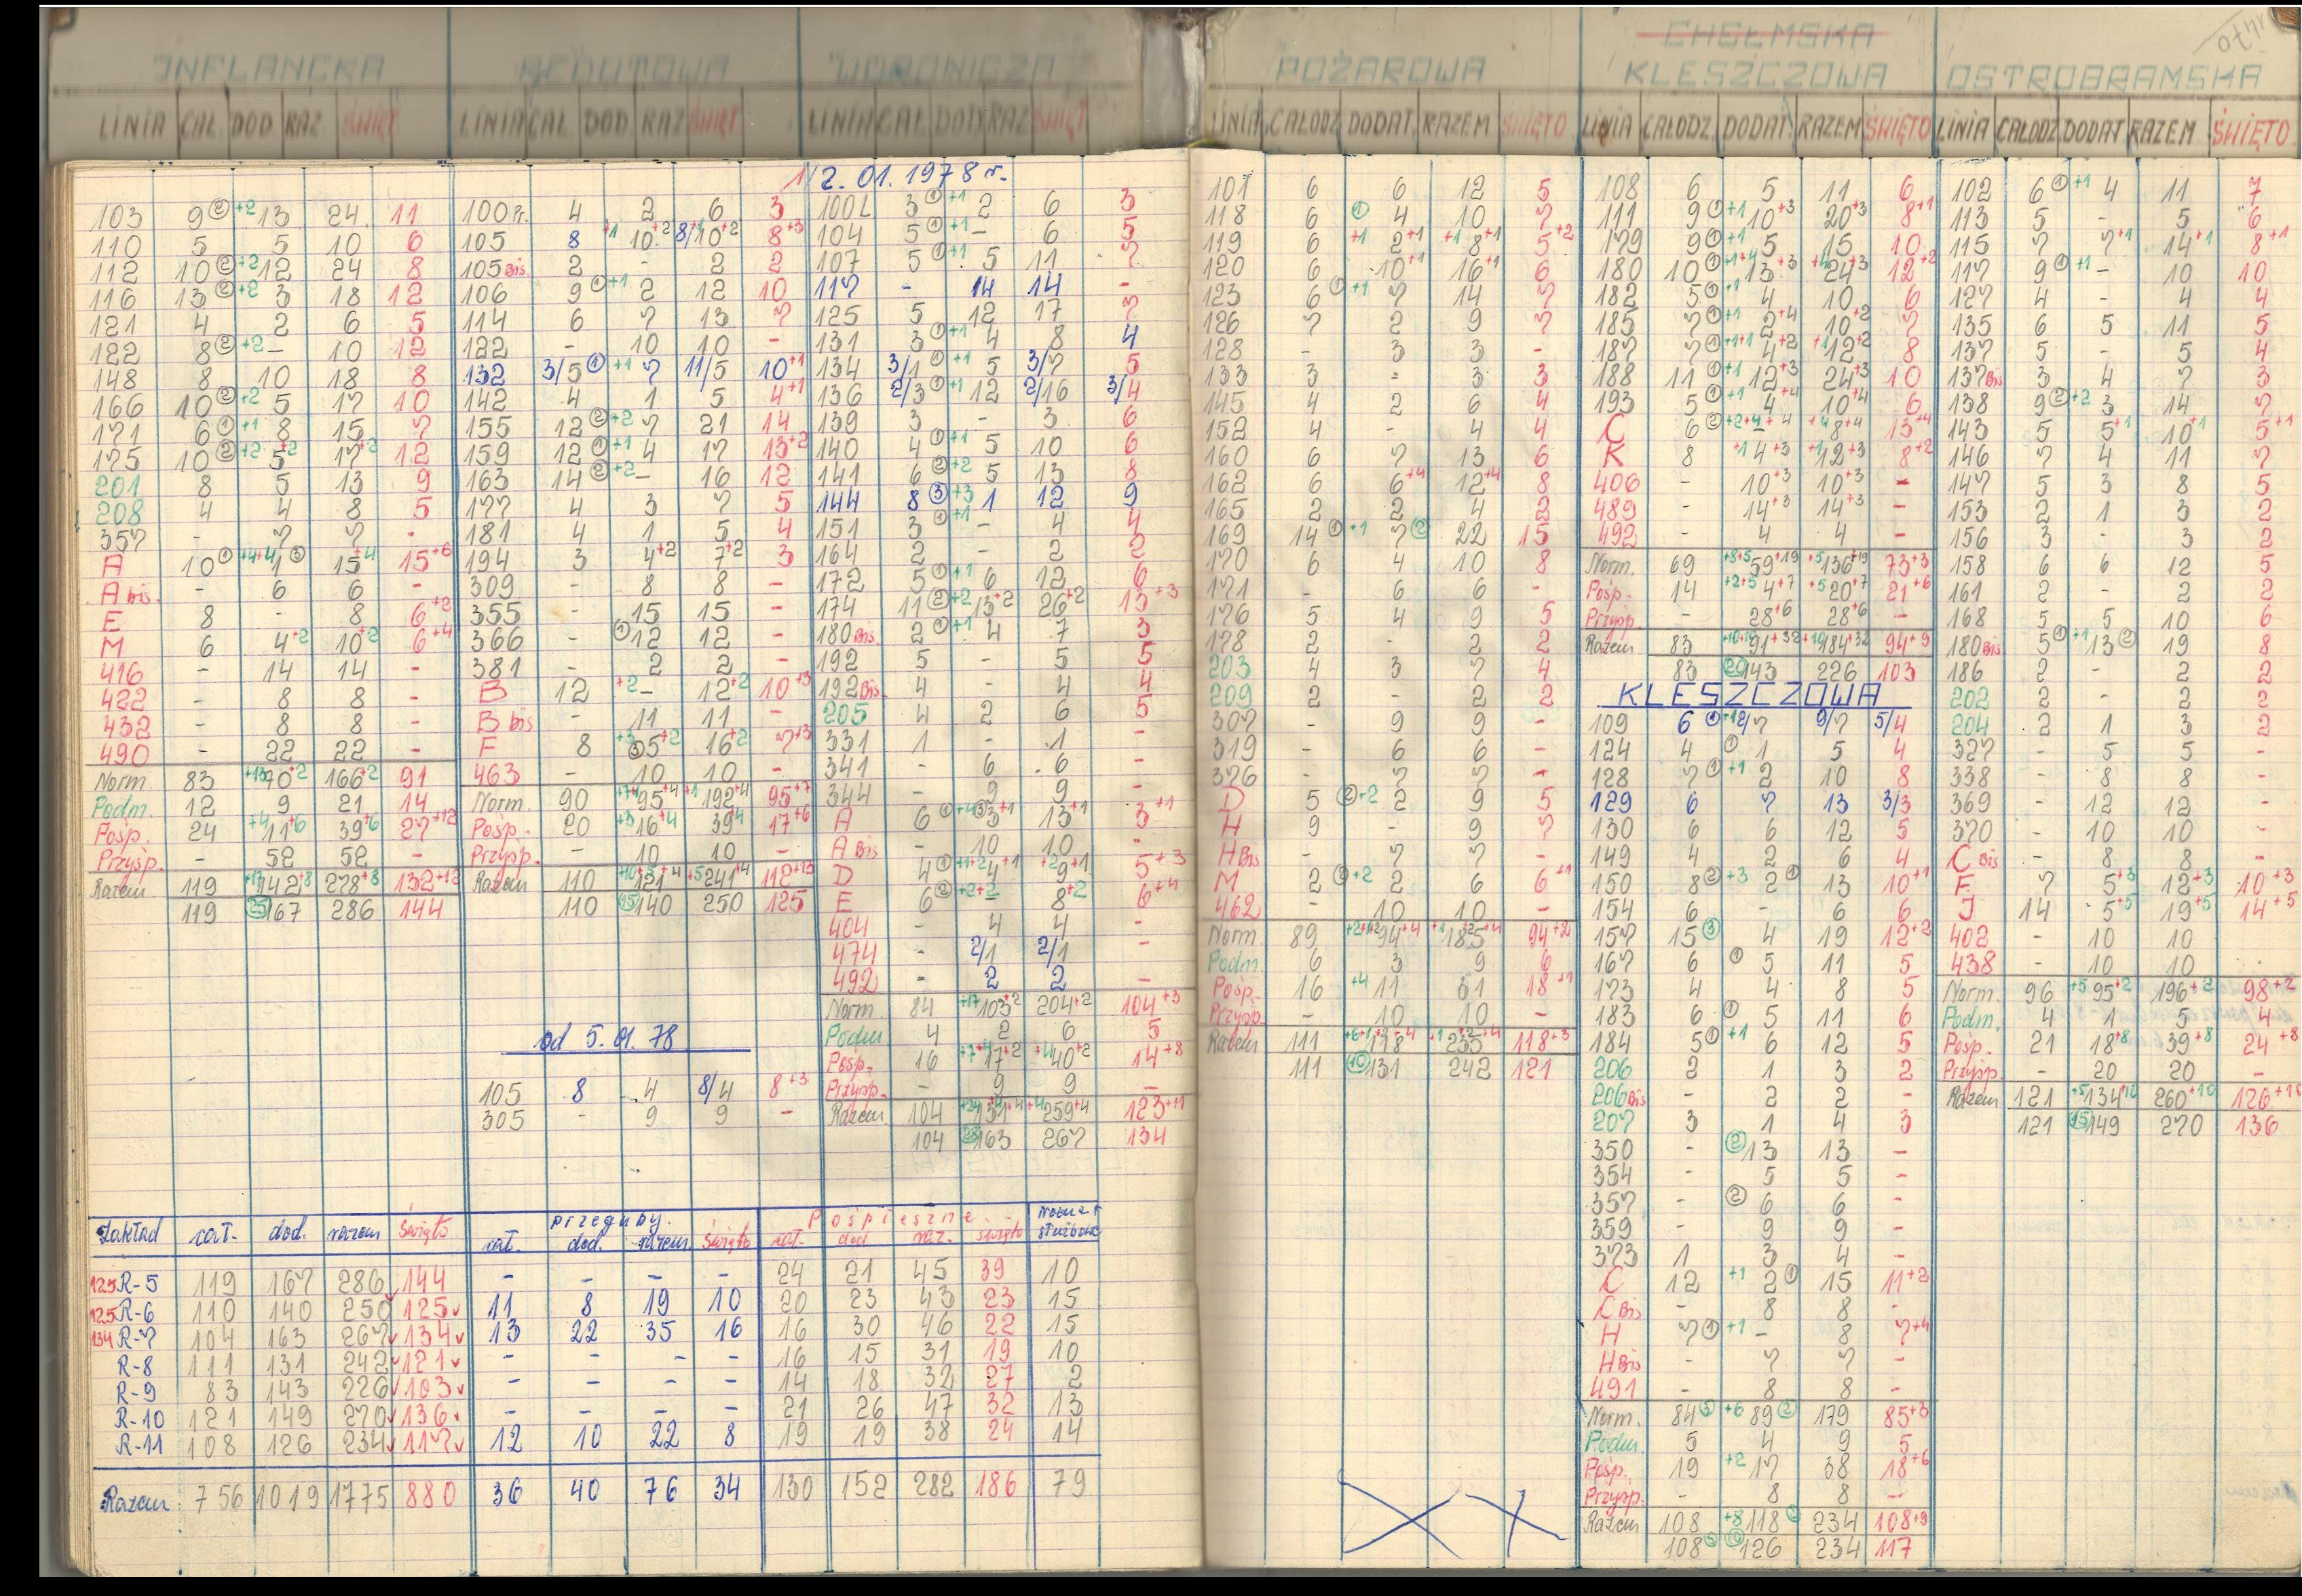 INFLANCKA
LINIA CAŁ. DOD RAZ ŚWIĘT
103 9 ② +2 13 24 11
110 5 5 10 6
112 10 ② +2 12 24 8
116 13 ② +2 3 18 12
121 4 2 6 5
122 8 ② +2 - 10 12
148 8 10 18 8
166 10 ② +2 5 17 10
171 6 ① +1 8 15 7
175 10 ② +2 5+2 17+2 12
201 8 5 13 9
208 4 4 8 5
357 - 7 7 -
A 10 ① +4+4 1 ③ 15+4 15+6
A bis - 6 6 -
E 8 - 8 6+2
M 6 4+2 10+2 6+4
416 - 14 14 -
422 - 8 8 -
432 - 8 8 -
490 - 22 22 -
Norm 83 +13 70+2 166+2 91
Podm. 12 9 21 14
Pośp. 24 +4 11+6 39+6 27+12
Przyśp. - 52 52 -
Razem 119 +17 142+8 278+8 132+12
119 (25) 167 286 144
REDUTOWA
LINIA CAŁ DOD RAZ ŚWIĘT
100 Pr. 4 2 6 3
105 8 +1 10+2 8/10+2 8+3
105 Bis 2 - 2 2
106 9 ① +1 2 12 10
114 6 7 13 7
122 - 10 10 -
132 3/5 ① +1 7 11/5 10+1
142 4 1 5 4+1
155 12 ② +2 7 21 14
159 12 ① +1 4 17 13+2
163 14 ② +2 - 16 12
177 4 3 7 5
181 4 1 5 4
194 3 4+2 7+2 3
309 - 8 8 -
355 - 15 15 -
366 - ① 12 12 -
381 - 2 2 -
B 12 +2 - 12+2 10+3
B bis - 11 11 -
F 8 +3 5+2 16+2 7+3
463 - 10 10 -
Norm. 90 95+4 192+4 95+7
Pośp. 20 +3 16+4 39+4 17+6
Przysp. - 10 10 -
Razem 110 121+4 241+4 112+13
110 (15) 140 250 125
od 5.01.78
105 8 4 8/4 8+3
305 - 9 9 -
WORONICZA
LINIA CAŁ DOD RAZ ŚWIĘT
12.01.1978 r.
100 L 3 ① +1 2 6 3
104 5 ① +1 - 6 5
107 5 ① +1 5 11 7
117 - 14 14 -
125 5 12 17 7
131 3 ① +1 4 8 4
134 3/1 ① +1 5 3/7 5
136 2/3 ① +1 12 2/16 3/4
139 3 - 3 6
140 4 ① +1 5 10 6
141 6 ② +2 5 13 8
144 8 ③ +3 1 12 9
151 3 ① +1 - 4 4
164 2 - 2 2
172 5 ① +1 6 12 6
174 11 ② +2 13+2 26+2 13+3
180 Bis 2 ① +1 4 7 3
192 5 - 5 5
192 Bis. 4 - 4 4
205 4 2 6 5
331 1 - 1 -
341 - 6 6 -
344 - 9 9 -
A 6 ① +4 3+1 13+1 3+1
A Bis - 10 10 -
D 4 ① +1+2 4+1 +2 9+1 5+3
E 6 ② +2+2 - 8+2 6+4
404 - 4 4 -
474 - 2/1 2/1 -
492 - 2 2 -
Norm. 84 +17 103+2 204+2 104+3
Podm 4 2 6 5
Pośp. 16 +7+4 17+2 +4 40+2 14+8
Przysp. - 9 9 -
Razem 104 131+4 +4 259+4 123+11
104 (28) 163 267 134
Zakład cał. dod. razem święto przeguby. cał. dod. razem święto Pośpieszne cał. dod raz. święto służbowe
125 R-5 119 167 286 144 - - - - 24 21 45 39 10
125 R-6 110 140 250 125 11 8 19 10 20 23 43 23 15
134 R-7 104 163 267 134 13 22 35 16 16 30 46 22 15
R-8 111 131 242 121 - - - - 16 15 31 19 10
R-9 83 143 226 103 - - - - 14 18 32 27 2
R-10 121 149 270 136 - - - - 21 26 47 32 13
R-11 108 126 234 117 12 10 22 8 19 19 38 24 14
Razem 756 1019 1775 880 36 40 76 34 130 152 282 186 79
POŻAROWA
LINIA CAŁODZ DODAT. RAZEM ŚWIĘTO
101 6 6 12 5
118 6 ① 4 10 7
119 6 +1 2+1 +1 8+1 5+2
120 6 10+1 16+1 6
123 6 ① +1 7 14 7
126 7 2 9 7
128 - 3 3 -
133 3 - 3 3
145 4 2 6 4
152 4 - 4 4
160 6 7 13 6
162 6 6+4 12+4 8
165 2 2 4 2
169 14 ① +1 7 ② 22 15
170 6 4 10 8
171 - 6 6 -
176 5 4 9 5
178 2 - 2 2
203 4 3 7 4
209 2 - 2 2
307 - 9 9 -
319 - 6 6 -
376 - 7 7 -
D 5 ② +2 2 9 5
H 9 - 9 7
H Bis - 7 7 -
M 2 ② +2 2 6 6+1
462 - 10 10 -
Norm. 89 94+4 185+4 94+2
Podm. 6 3 9 6
Pośp. 16 +4 11 31 18+1
Przysp. - 10 10 -
Razem 111 118+4 235+4 118+3
111 (10) 131 242 121
CHEŁMSKA
KLESZCZOWA
LINIA CAŁODZ. DODAT. RAZEM ŚWIĘTO
108 6 5 11 6
111 9 ① +1 10+3 20+3 8+1
179 9 ① +1 5 15 10
180 10 ① +1+4 13+3 +4 24+3 12+2
182 5 ① +1 4 10 6
185 7 ① +1 2+4 10+2 7
187 7 ① +1+1 4+2 +1 12+2 8
188 11 ① +1 12+3 24+3 10
193 5 ① +1 4+4 10+4 6
C 6 ② +2+4 -+4 +4 8+4 13+4
K 8 +1 4+3 +1 12+3 8+2
406 - 10+3 10+3 -
489 - 14+3 14+3 -
492 - 4 4 -
Norm. 69 +8+5 59+19 +5 136+19 73+3
Pośp. 14 +2+5 4+7 +5 20+7 21+6
Przysp. - 28+6 28+6 -
Razem 83 91+32 184+32 94+9
83 (20) 143 226 103
KLESZCZOWA
109 6 ① +1 2/7 9/7 5/4
124 4 ① 1 5 4
128 7 ① +1 2 10 8
129 6 7 13 3/3
130 6 6 12 5
149 4 2 6 4
150 8 ② +3 2 ① 13 10+1
154 6 - 6 6
157 15 ③ 4 19 12+2
167 6 ① 5 11 5
173 4 4 8 5
183 6 ① 5 11 6
184 5 ① +1 6 12 5
206 2 1 3 2
206 Bis - 2 2 -
207 3 1 4 3
350 - ② 13 13 -
354 - 5 5 -
357 - ② 6 6 -
359 - 9 9 -
373 1 3 4 -
C 12 +1 2 ① 15 11+2
C Bis - 8 8 -
H 7 ① +1 - 8 7+4
H Bis - 7 7 -
491 - 8 8 -
Norm. 84 +6 89 179 85+3
Podm. 5 4 9 5
Pośp. 19 +2 17 38 18+6
Przysp. - 8 8 -
Razem 108 +8 118 234 108+9
108 126 234 117
OSTROBRAMSKA
LINIA CAŁODZ DODAT RAZEM ŚWIĘTO
102 6 ① +1 4 11 7
113 5 - 5 6
115 7 7+1 14+1 8+1
117 9 ① +1 - 10 10
127 4 - 4 4
135 6 5 11 5
137 5 - 5 4
137 Bis 3 4 7 3
138 9 ② +2 3 14 7
143 5 5+1 10+1 5+1
146 7 4 11 7
147 5 3 8 5
153 2 1 3 2
156 3 - 3 2
158 6 6 12 5
161 2 - 2 2
168 5 5 10 6
180 Bis 5 ① +1 13 ② 19 8
186 2 - 2 2
202 2 - 2 2
204 2 1 3 2
327 - 5 5 -
338 - 8 8 -
369 - 12 12 -
370 - 10 10 -
C Bis - 8 8 -
F 7 5+3 12+3 10+3
J 14 5+5 19+5 14+5
402 - 10 10
438 - 10 10
Norm. 96 +5 95+2 196+2 98+2
Podm. 4 1 5 4
Pośp. 21 18+8 39+8 24+8
Przysp. - 20 20 -
Razem 121 +5 134+10 260+10 126+10
121 (15) 149 270 136